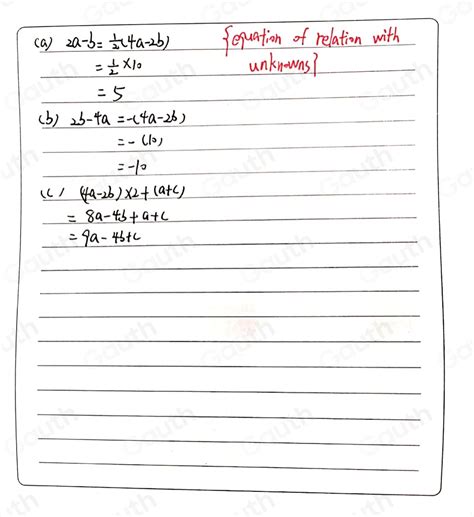 (a) 2a-b = 1/2(4a-2b) {equation of relation with
= 1/2 ×10 unknowns}
= 5
(b) 2b-4a = -(4a-2b)
= -(10)
= -10
(c) (4a-2b)×2+(a+c)
= 8a-4b+a+c
= 9a-4b+c